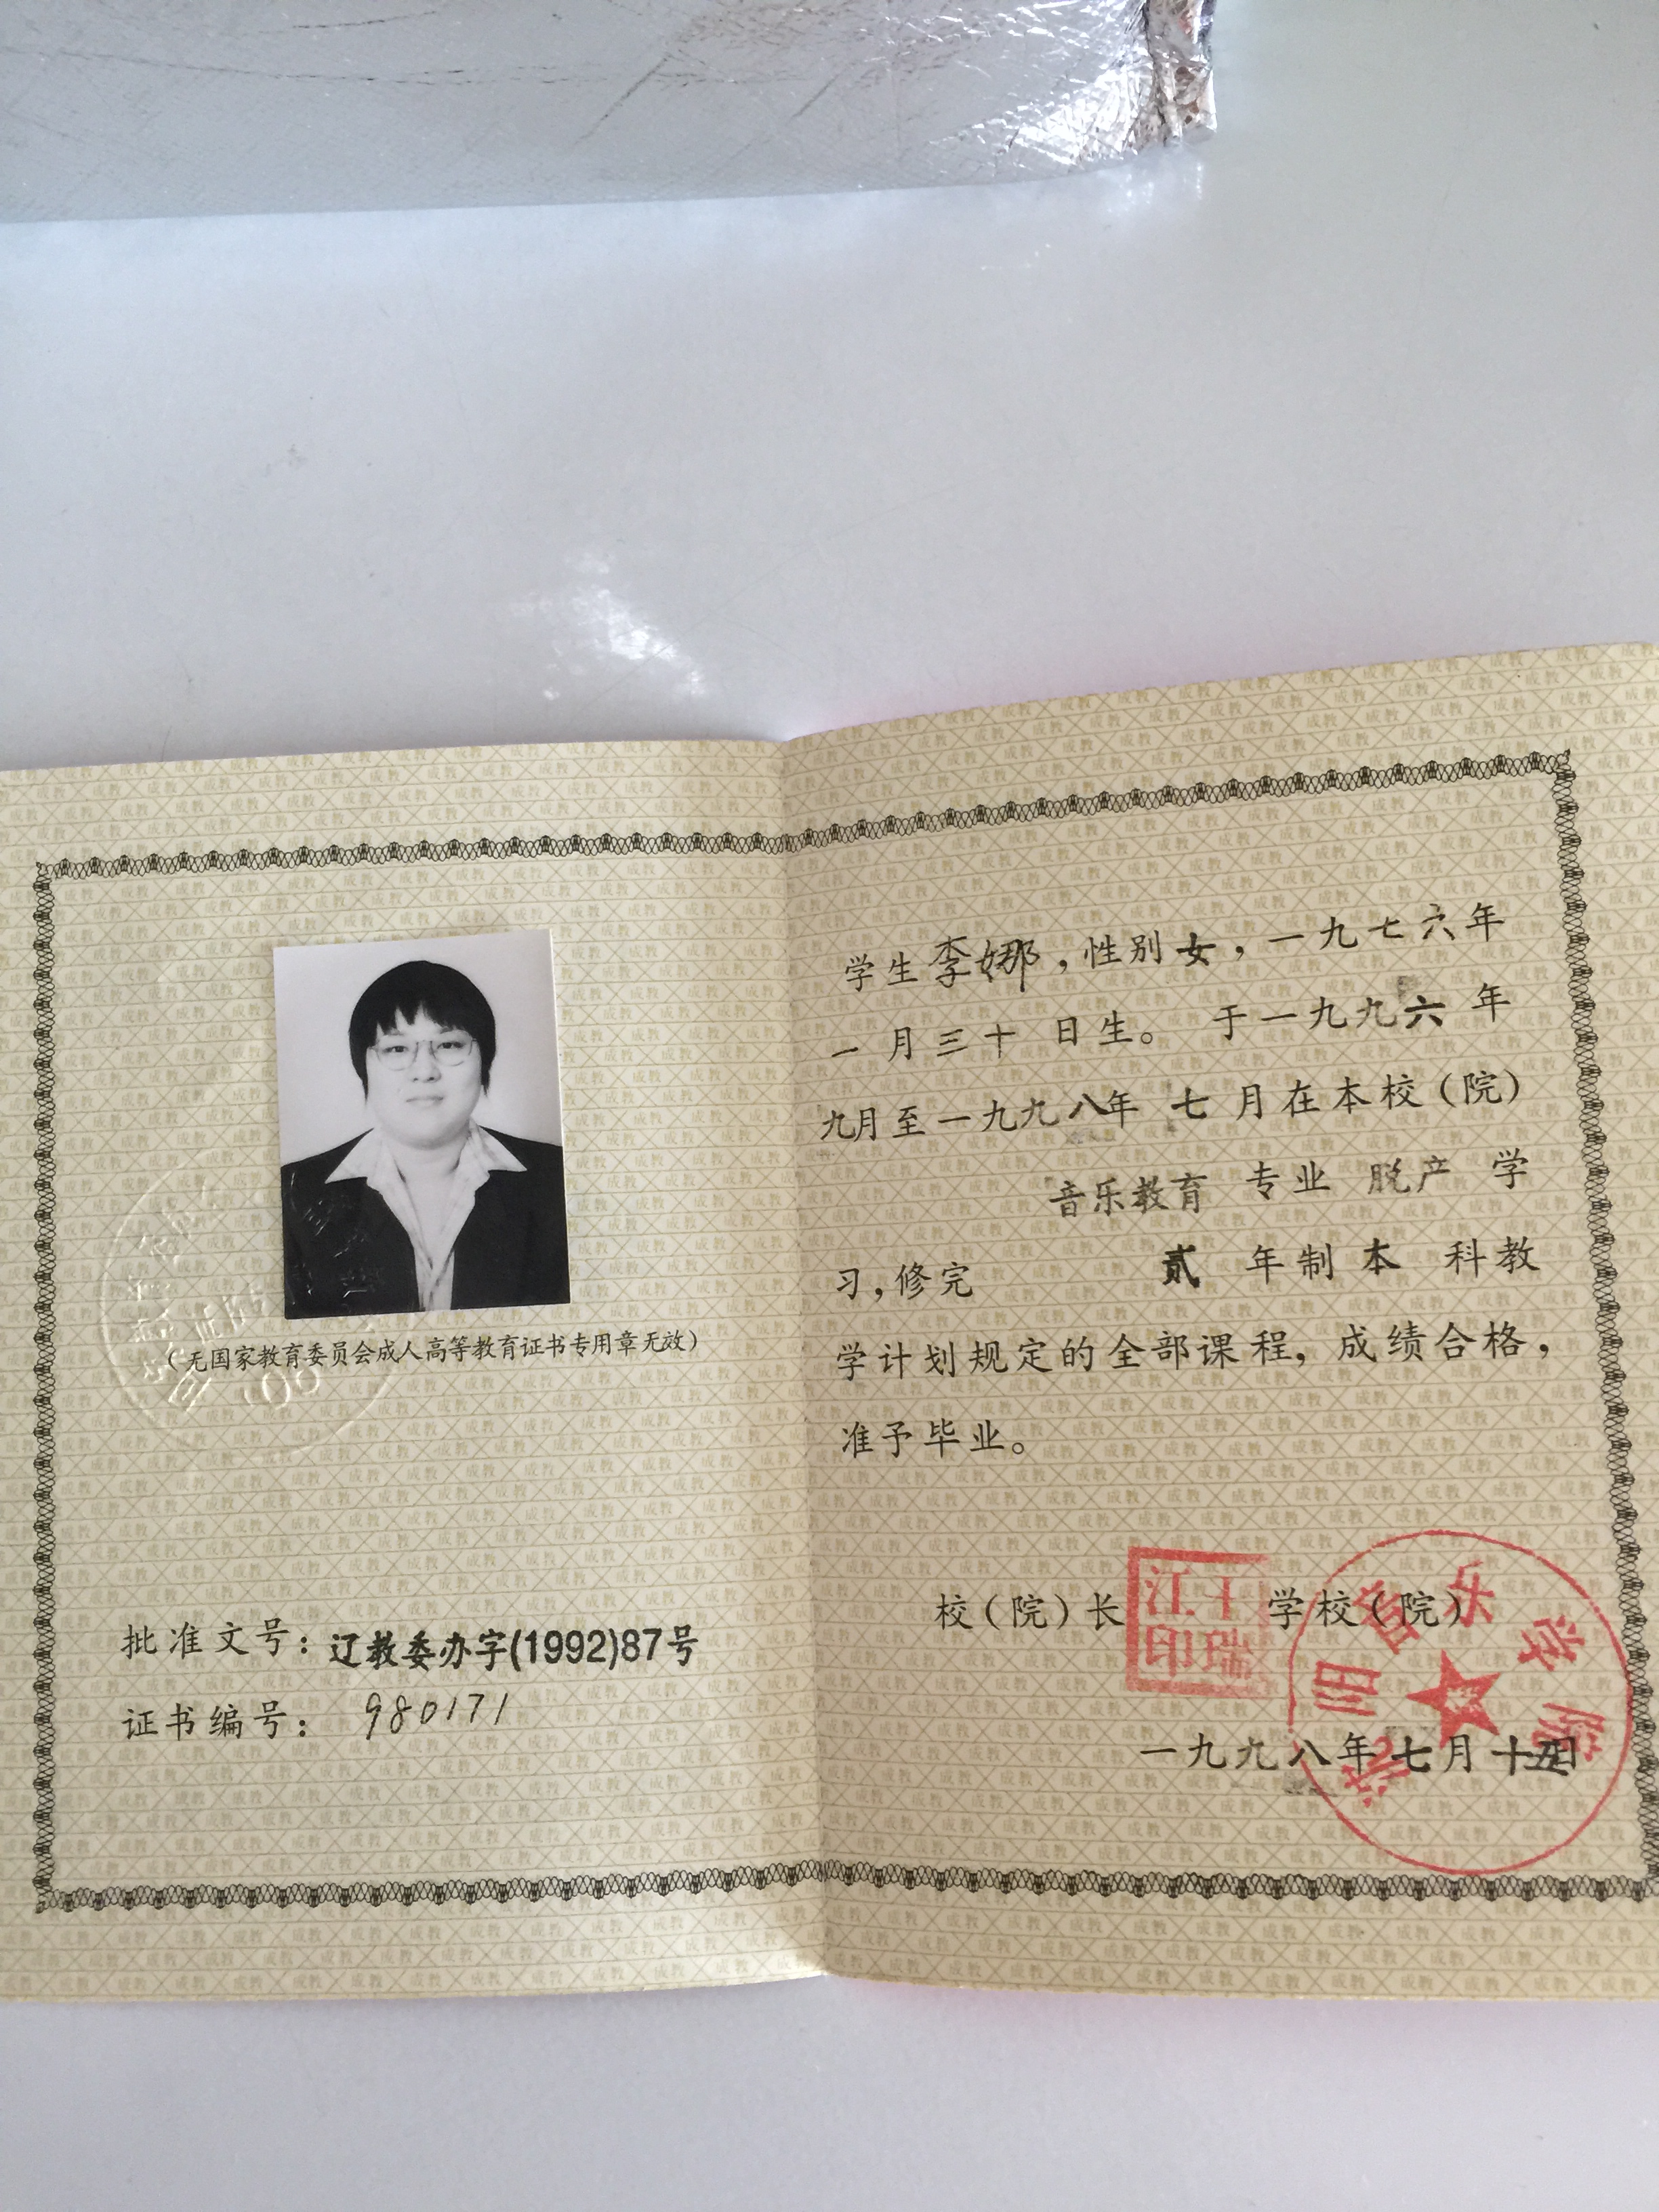 （无国家教育委员会成人高等教育证书专用章无效）
批准文号：辽教委办字(1992)87号
证书编号：980171
学生李娜，性别女，一九七六年
一月三十日生。于一九九六年
九月至一九九八年七月在本校（院）
音乐教育专业脱产学
习，修完贰年制本科教
学计划规定的全部课程，成绩合格，
准予毕业。
校（院）长 学校（院）
江瑞印
沈阳音乐学院
一九九八年七月十五日